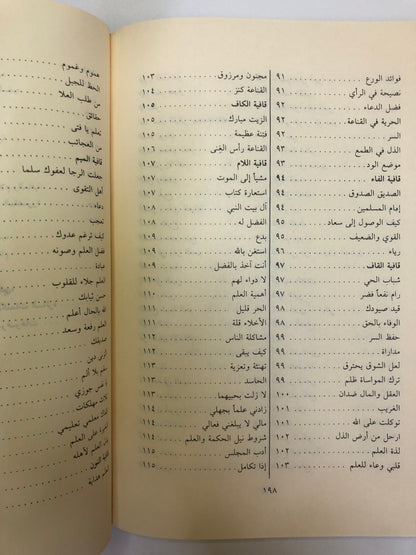 فوائد الورع ٩١
نصيحة في الرأي ٩١
فضل الدعاء ٩٢
الحرية في القناعة ٩٢
السر ٩٢
الذل في الطمع ٩٢
موضع الود ٩٣
قافية الفاء ٩٤
الصديق الصدوق ٩٤
إمام المسلمين ٩٤
كيف الوصول إلى سعاد ٩٥
القوي والضعيف ٩٥
رياء ٩٦
قافية القاف ٩٧
شباب الحي ٩٧
رام نفعاً فضر ٩٧
قيد صيودك ٩٨
الوفاء بالحق ٩٨
حفظ السر ٩٩
مداراة ٩٩
لعل الشوق يحترق ٩٩
ترك المواساة ظلم ٩٩
العقل والمال ضدان ١٠٠
الغريب ١٠١
توكلت على الله ١٠١
ارحل من أرض الذل ١٠٢
لذة العلم ١٠٢
قلبي وعاء للعلم ١٠٣
مجنون ومرزوق ١٠٣
القناعة كنز ١٠٤
قافية الكاف ١٠٥
الزيت مبارك ١٠٥
فتنة عظيمة ١٠٦
القناعة رأس الغنى ١٠٦
قافية اللام ١٠٧
مشياً إلى الموت ١٠٧
استعارة كتاب ١٠٧
آل بيت النبي ١٠٨
الفضل له ١٠٨
بدع ١٠٨
استغن بالله ١٠٩
أنت أخذ بالفضل ١٠٩
لا دواء لهم ١١٠
أهمية العلم ١١٠
الحر قليل ١١١
الأخلاء قلة ١١١
مشاكلة الناس ١١٢
كيف يبقى ١١٢
تهنئة وتعزية ١١٣
الحاسد ١١٣
لا زلت بحبيهما ١١٣
زادني علماً بجهلي ١١٣
مالي لا يبلغني فعالي ١١٤
شروط نيل الحكمة والعلم ١١٤
أدب المجلس ١١٥
إذا تكامل ١١٥
١٩٨
هموم وغموم
الحظ للجبل
من طلب العلا
حقائق
تعلم يا فتى
من العجائب
قافية الميم
جعلت الرجا لعفوك سلما
أهل التقوى
دعاء
تعجب
كيف ترغم عدوك
فضل العلم وصونه
عبادة
العلم جلاء للقلوب
حسن ثيابك
الله بالحال أعلم
العلم رفعة وسعد
صديقك